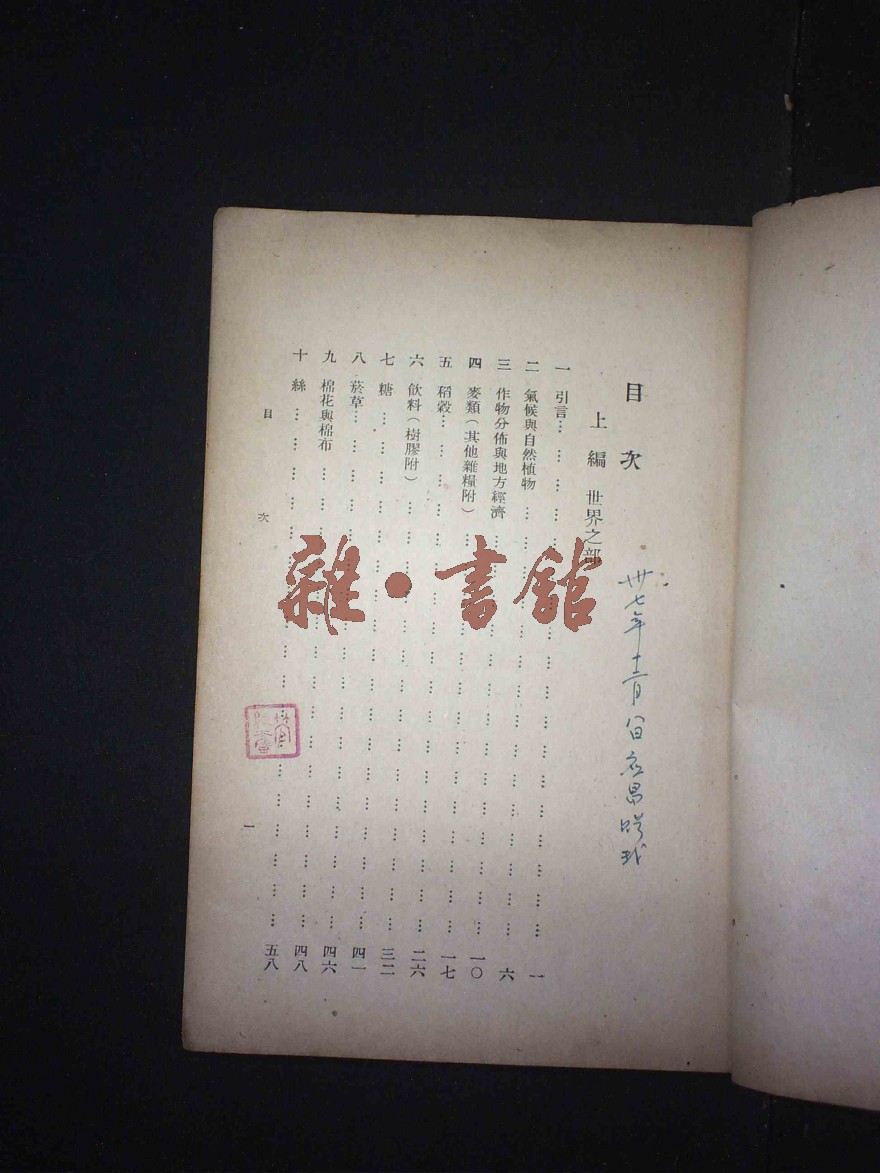 目次
卅七年十二月 昌
上編 世界之部
一 引言…………………一
二 氣候與自然植物…………………六
三 作物分佈與地方經濟…………………一〇
四 麥類（其他雜糧附）…………………一七
五 稻穀…………………二六
六 飲料（樹膠附）…………………三二
七 糖…………………四一
八 菸草…………………四六
九 棉花與棉布…………………四八
十 絲…………………五八
目次
一
雜·書館